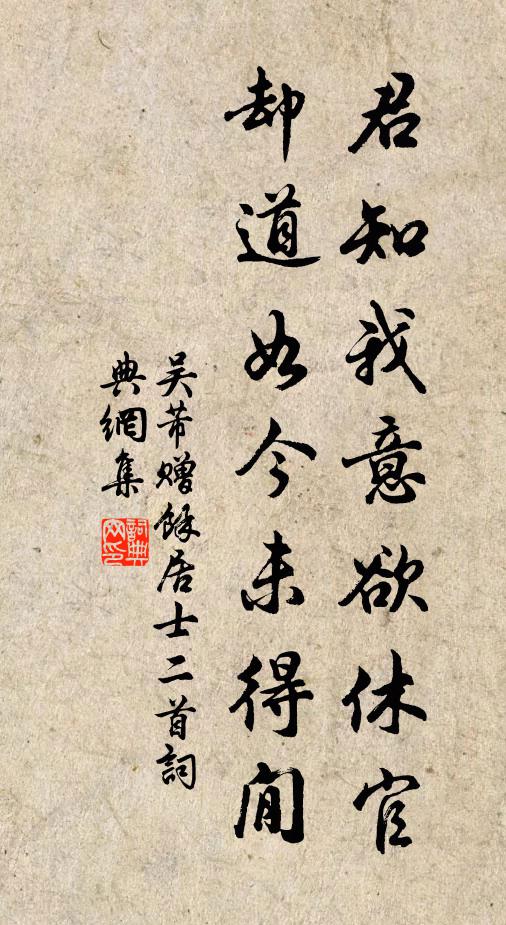 君知我意欲休官
却道如今未得閒
吴芾赠馀居士二首詞
典網集
詞典网印